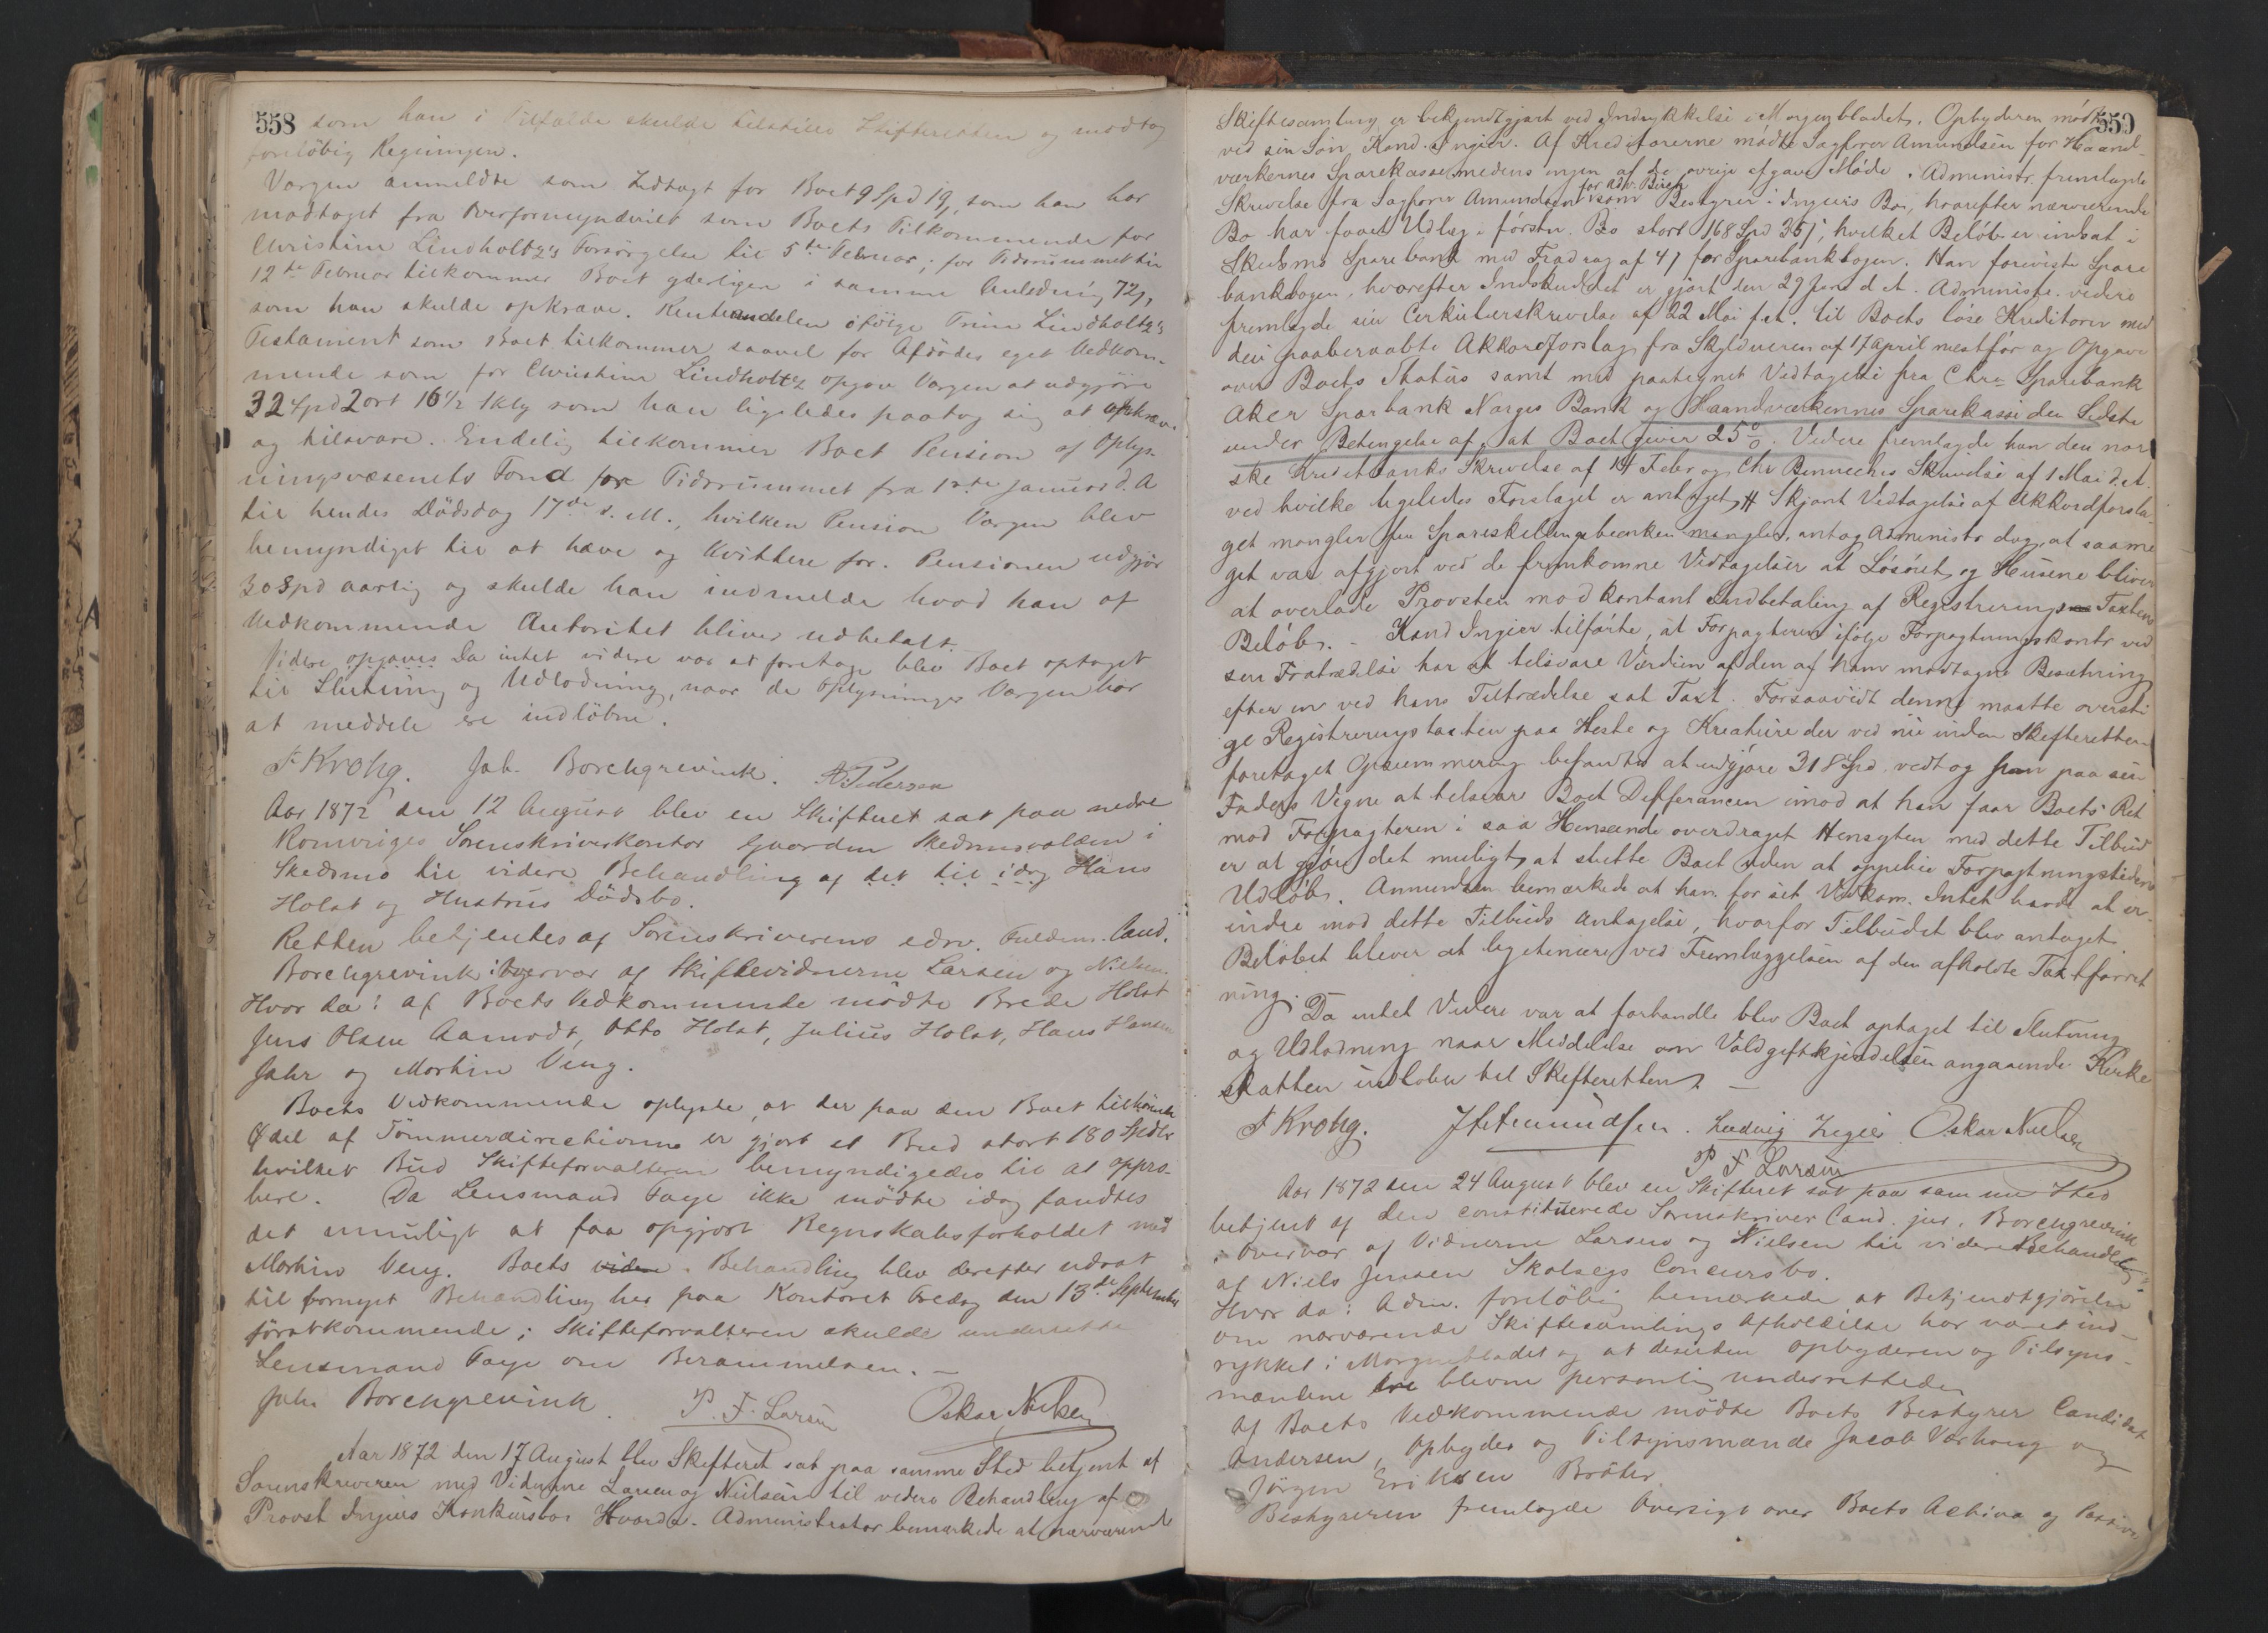 558
som han i Tilfælde skulde tilstille Skifteretten og modtog
foreløbig Regningen.
Værgen anmeldte som Indtægt for Boet 9 Spd 19 ß, som han har
modtaget fra Overformynderiet som Boets Tilkommende for
Christine Lindholtz's Forsørgelse til 5te Februar; for Tidsrummet til
12te Februar tilkommer Boet yderligere i samme Anledning 72 ß,
som han skulde opkræve. Renteandelen ifølge Trine Lindholtz's
Testament som Boet tilkommer saavel for Afdødes eget Vedkom-
mende som for Christine Lindholtz opgav Værgen at udgjøre
32 Spd 2 ort 16 1/2 Skg som han ligeledes paatog sig at opkræve
og tilsvare. Endelig tilkommer Boet Pension af Oplys-
ningsvæsenets Fond for Tidsrummet fra 1ste Januar d. A
til hendes Dødsdag 17de s. M., hvilken Pension Værgen blev
bemyndiget til at hæve og kvittere for. Pensionen udgjør
30 Spd aarlig og skulde han indmelde hvad han af
Vedkommende Autoritet bliver udbetalt.
Videre opgaves Da intet videre var at foretage blev Boet optaget
til Slutning og Udlodning, naar de Oplysninger Værgen har
at meddele ere indløbne.
F Krohg. Joh. Borchgrevink. A Pedersen
Aar 1872 den 12 August blev en Skifteret sat paa nedre
Romeriges Sorenskriverkontor Gaarden Skedsmovolden i
Skedsmo til videre Behandling af det til idag Hans
Holst og Hustrus Dødsbo.
Retten betjentes af Sorenskriverens edsv. Fuldm. Cand.
Borchgrevink i Overvær af Skiftevidnerne Larsen og Nielsen.
Hvor da: af Boets Vedkommende mødte Brede Holst
Jens Olsen Aamodt, Otto Holst, Julius Holst, Hans Hansen
Jahr og Martin Veng.
Boets Vedkommende oplyste, at der paa den Boet tilkomne
Odel af Tømmerdirectionen er gjort et Bud stort 180 Spdlr
hvilket Bud Skifteforvalteren bemyndigedes til at appro-
bere. Da Lensmand Faye ikke mødte idag fandtes
det umuligt at faa opgjort Regnskabsforholdet med
Martin Veng. Boets videre Behandling blev derefter udsat
til fornyet Behandling her paa Kontoret Fredag den 13de September
førstkommende; Skifteforvalteren skulde underrette
Lensmand Faye om Berammelsen. —
Joh. Borchgrevink. P. F. Larsen Oskar Nielsen
Aar 1872 den 17 August blev Skifteret sat paa samme Sted betjent af
Sorenskriveren med Vidnerne Larsen og Nielsen til videre Behandling af
Provst Ingiers Konkursbo. Hvorda. Administrator bemærkede at nærværende
559
Skiftesamling er bekjendtgjort ved Indrykkelse i Morgenbladet. Opbyderen mødte
ved sin Søn, Kand. Ingier. Af Kreditorerne mødte Sagfører Amundsen for Haand-
værkernes Sparekasse, medens ingen af de øvrige afgave Møde. Administr. fremlagde
Skrivelse fra Sagfører Amundsen for Adv. Birch som Bestyrer i Ingiers Bo, hvorefter nærværende
Bo har faaet Udlæg i førstn. Bo stort 168 Spd 35 ß, hvilket Beløb er indsat i
Skedsmo Sparebank med Fradrag af 4 ß for Sparebankbogen. Han foreviste Spare
bankbogen, hvorefter Indskuddet er gjort den 29 Juni d. A. Administr. videre
fremlagde sin Cirkulærskrivelse af 22 Mai f. A. til Boets løse Kreditorer med
deri paaberaabte Akkordforslag fra Skyldneren af 17 April næstfør og Opgave
over Boets Status samt med paategnet Vedtagelse fra Chra Sparebank
Aker Sparbank Norges Bank og Haandværkernes Sparekasse den Sidste
under Betingelse af, at Boet giver 25 %. Videre fremlagde han den nor
ske Kreditbanks Skrivelse af 14 Febr og Chr Bennechs Skrivelse af 1 Mai d. A.
ved hvilke ligeledes Forslaget er antaget. Skjønt Vedtagelse af Akkordforsla-
get mangler fra Spareskillingsbanken mangler, antog Administr dog, at saame
get var afgjort ved de fremkomne Vedtagelser at Løsøret og Husene bliver
at overlade Provsten mod kontant Indbetaling af Registrerings Taxtens
Beløb. - Kand Ingier tilførte, at Forpagteren ifølge Forpagtningskontr ved
sin Fratrædelse har at tilsvare Værdien af den af ham modtagne Besætning
efter en ved hans Tiltrædelse sat Taxt. Forsaavidt denne maatte oversti
ge Registreringstaxten paa Heste og Kreature der ved nu inden Skifteretten
foretaget Opsummering befandtes at udgjøre 318 Spd. vedtog han paa sin
Faders Vegne at tilsvare Boet Differancen imod at han faar Boets Ret
mod Forpagteren i saa Henseende overdraget. Hensigten med dette Tilbud
er at gjøre det muligt, at slutte Boet uden at oppebie Forpagtningstidens
Udløb. Amundsen bemærkede at han for sit Vedkom. Intet havde at er-
indre mod dette Tilbuds Antagelse, hvorfor Tilbudet blev antaget.
Beløbet bliver at legitimere ved Fremlæggelsen af den afholdte Taxtforret
ning.
Da intet Videre var at forhandle blev Boet optaget til Slutning
og Udlodning naar Meddelelse om Voldgiftkjendelsen angaaende Kirke
skatten indløber til Skifteretten. —
F Krohg. J Amundsen. Ludvig Ingier Oskar Nielsen
P F Larsen
Aar 1872 den 24 August blev en Skifteret sat paa samme Sted
betjent af den constituerede Sorenskriver Cand. jur. Borchgrevink
i Overvær af Vidnerne Larsen og Nielsen til videre Behandling
af Niels Jensen Skolsegs Concursbo.
Hvor da: Adm. foreløbig bemærkede at Bekjendtgjørelse
om nærværende Skiftesamlings Afholdelse har været ind-
rykket i Morgenbladet og at desuden Opbyderen og Tilsyns-
mændene ere blevne personlig underrettede.
Af Boets Vedkommende mødte Boets Bestyrer Candidat
Andersen, Opbyder og Tilsynsmænde Jacob Værhaug og
Jørgen Eriksen Bråter.
Bestyreren fremlagde Oversigt over Boets Activa og Passiva